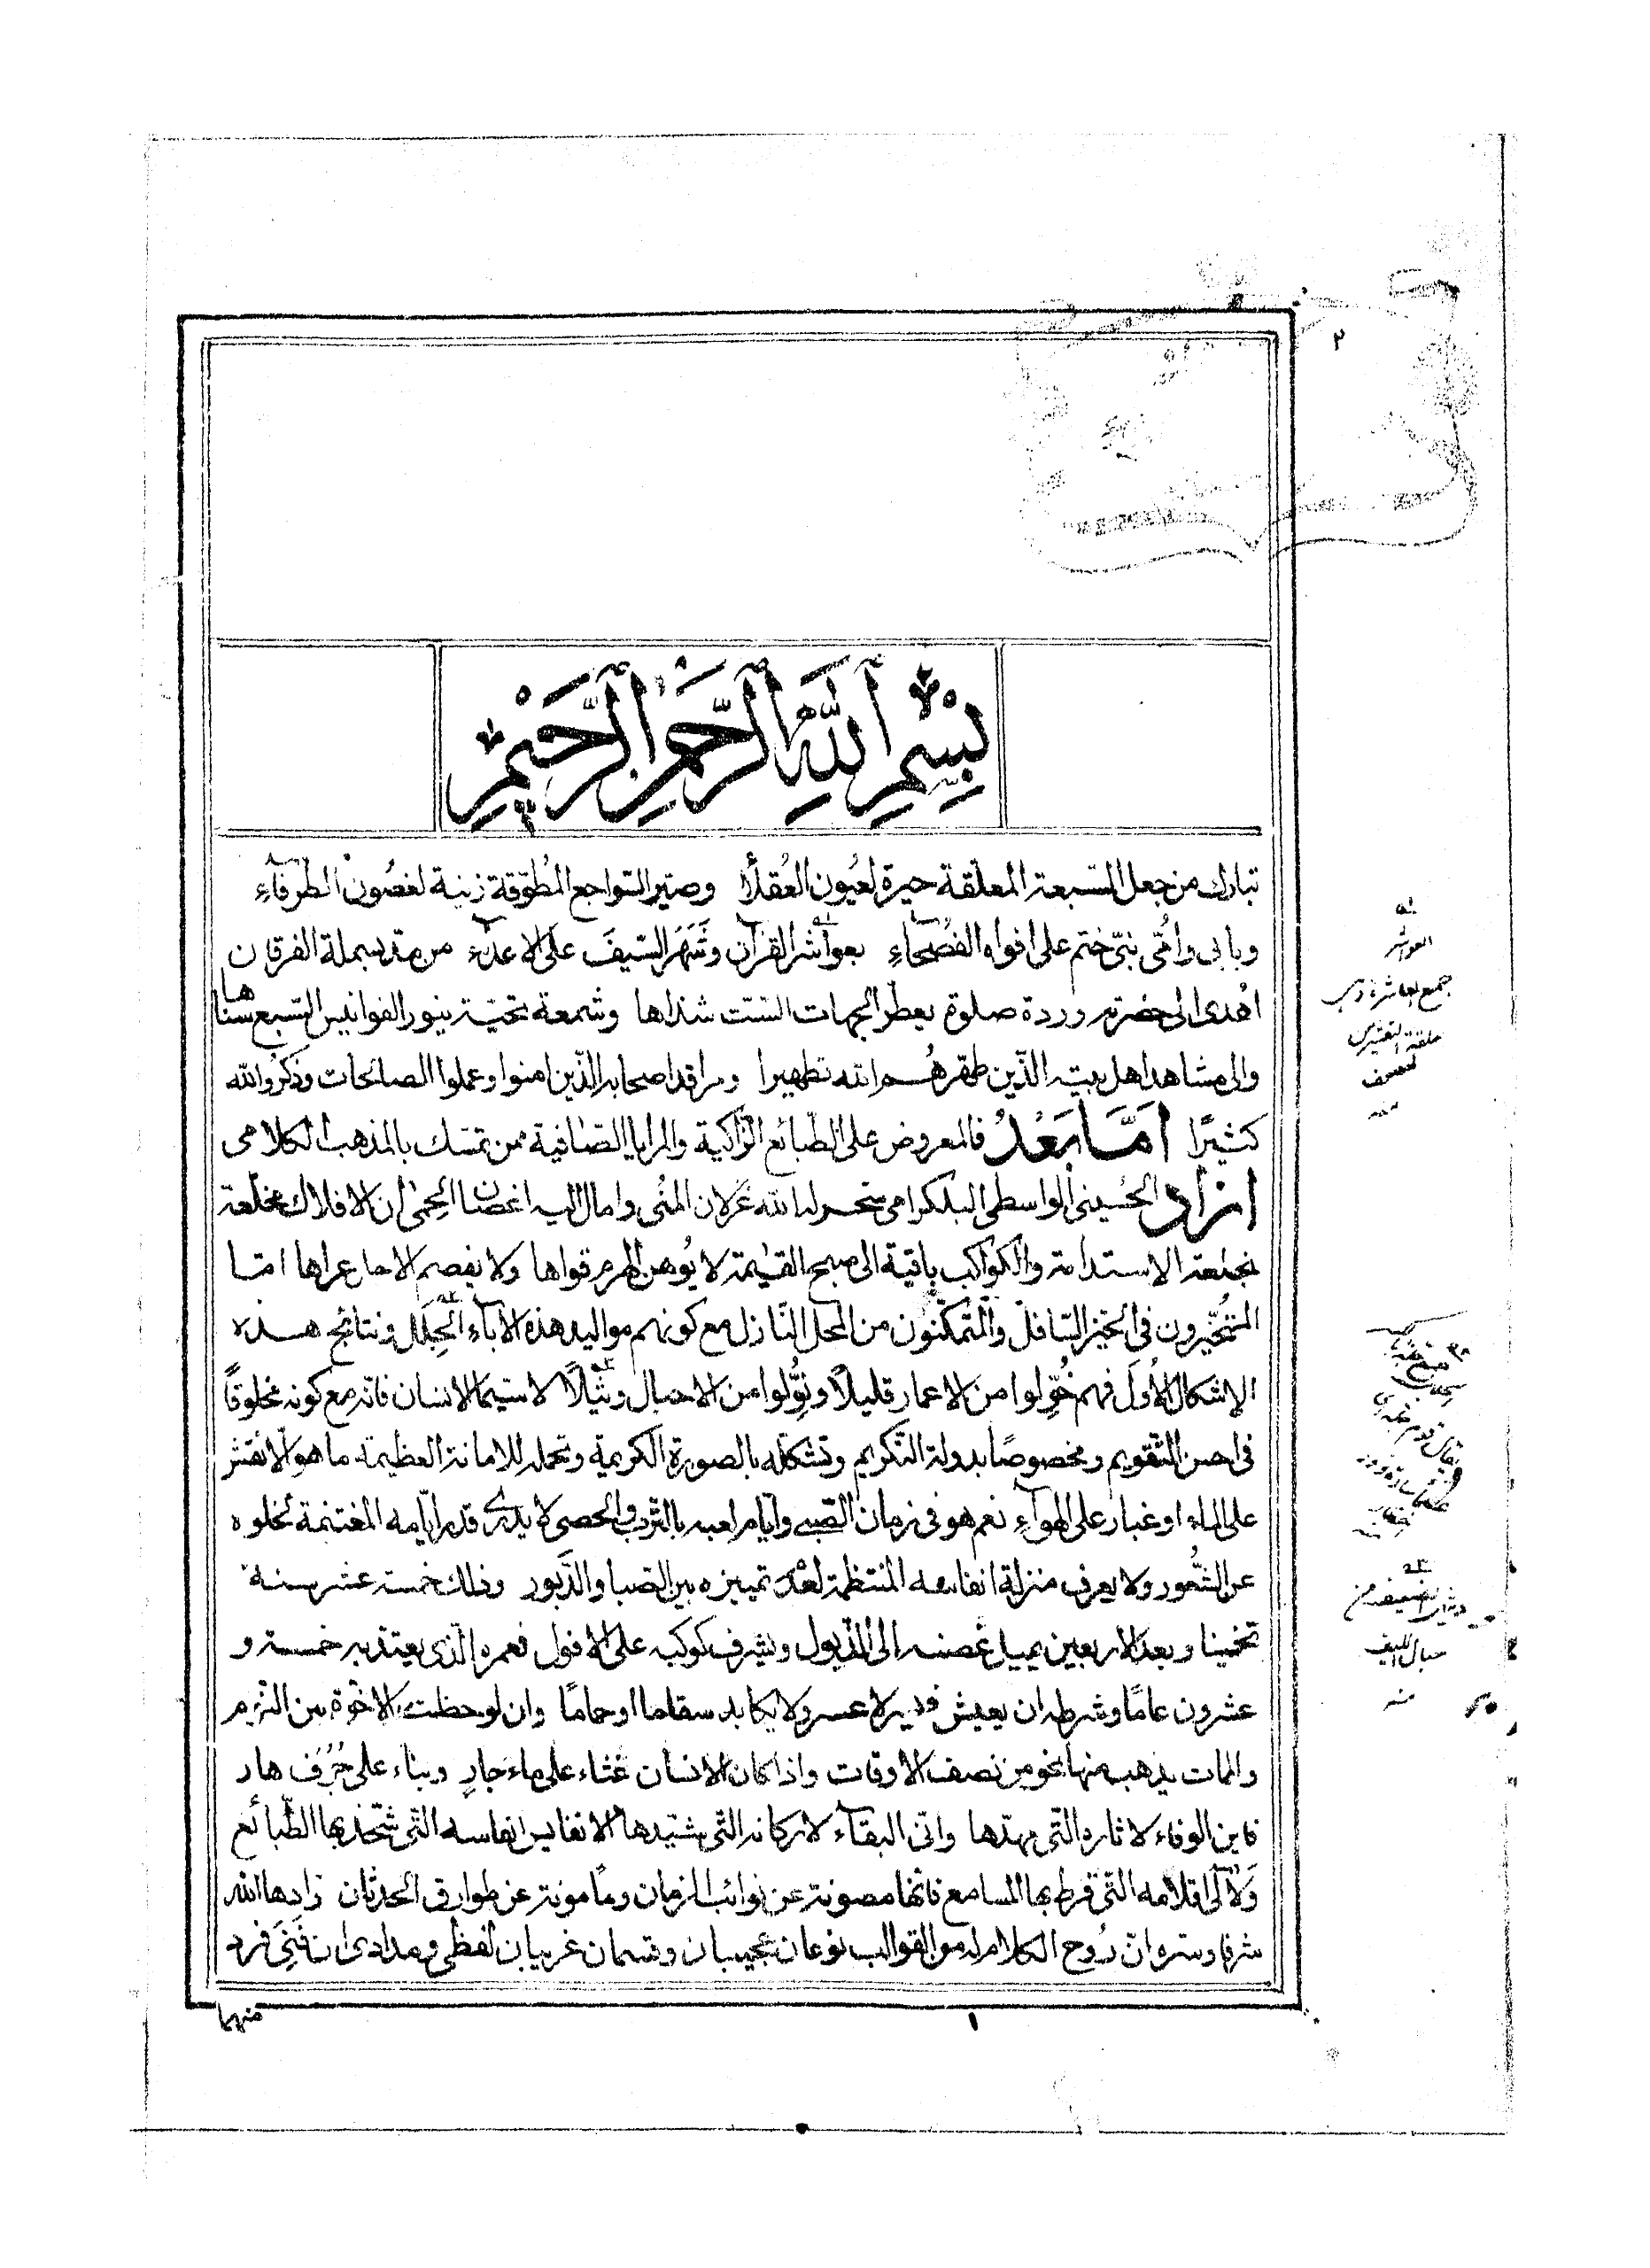 ٢
بِسْمِ اللّٰهِ الرَّحْمٰنِ الرَّحِيْمِ
تبارك من جعل السّبعة المعلّقة حيرة لعُيون العُقلاء وصيّر السّواجع المُطوّقة زينة لغصُون الطرفاءِ
وبابى وامّى نبىّ ختم على افواه الفصحاءِ بعواشر القرآن وشَهَر السّيفَ على الاعدآء من مدّ بسملة الفرقان
اُهدى الى حضرته وردة صلوة يعطّر الجهات السّت شذاها وشمعة تحيّة ينيور الفوانيس السّبع سناها
والى مشاهد اهل بيته الّذين طهّرهُم الله تطهيرا ومراقد اصحابه الّذين امنوا وعملوا الصالحات وذكرُوا الله
كثيرًا اَمَّا بَعْدُ فالمعروض على الطّبائع الزّاكية والمرايا الصّافية ممن تمسّك بالمذهب الكلامى
ازاد الحُسينى الواسطى البلكرامى سخّر له الله غزلان المُنى وامال اليه اغصان الحِمٰى ان الافلاك مخلّعة
بخلعة الاستدامة والكواكب باقية الى صبح القيٰمة لا يُوهن الهرم قواها ولا يفصم الاحا عراها امّا
المُتحيّرون فى الحيّز السّافل والمتمكّنون من المحل النّازل مع كونهم مواليد هذه الاٰباءِ الجِلَل ونتائج هذه
الاِشكال الاُوَل فهم خُوّلوا من الاعمار قليلًا ونُوّلوا من الاحبال وثيلًا لا سيّما الانسان فانّه مع كونه مخلوقًا
فى احسن التّقويم ومخصوصًا بدولة التّكريم وتشكّله بالصورة الكريمة وتحمله للامانة العظيمة ما هو الّا نقش
على الماء او غبار على الهوآءِ نعم هو فى زمان الصّبى وايّام لعبه بالتّرب والحصى لا يدرى قدر ايّامه المغتنمة لخلوه
عن الشُّعور ولا يعرف منزلة انفاسه المنتظمة لعدَم تمييزه بين الصبا والدّبور وذلك خمسة عشر سنة
تخمينا وبعد الاربعين يميل غصنه الى الذّبول ويشرف كوكبه على الافول فعمره الّذى يعتدّ به خمسة و
عشرون عامًا وشرطه ان يعيش فيه بلا عسر ولا يكابد سقاما او حماما وان لوحظت الاخوّة بين النّوم
والممات يذهب منها نحو من نصف الاوقات واذا كان الانسان غثاء على ماء جارٍ وبناء على جُرُف هار
فاين الوفاء لاثاره التّى مهّدها وانّى البقآء لاركانه التّى شيّدها الا نفايس انفاسه التّى شحّذ بها الطّبائع
وَلاٰلى اقلامه التّى قرط بها المسامع فانها مصونة عن نوائب الزمان ومأمونة عن طوارق الحدثان زادها الله
شرفا وستره انّ رُوح الكلام له من القوالب نوعان عجيبان وقسمان غريبان لفظى ومدادى ان فَنِىَ فرد
منهما
١
العواشر
جمع العاشرة وهى
حلقة التعشير
لمصحف
منه
منه